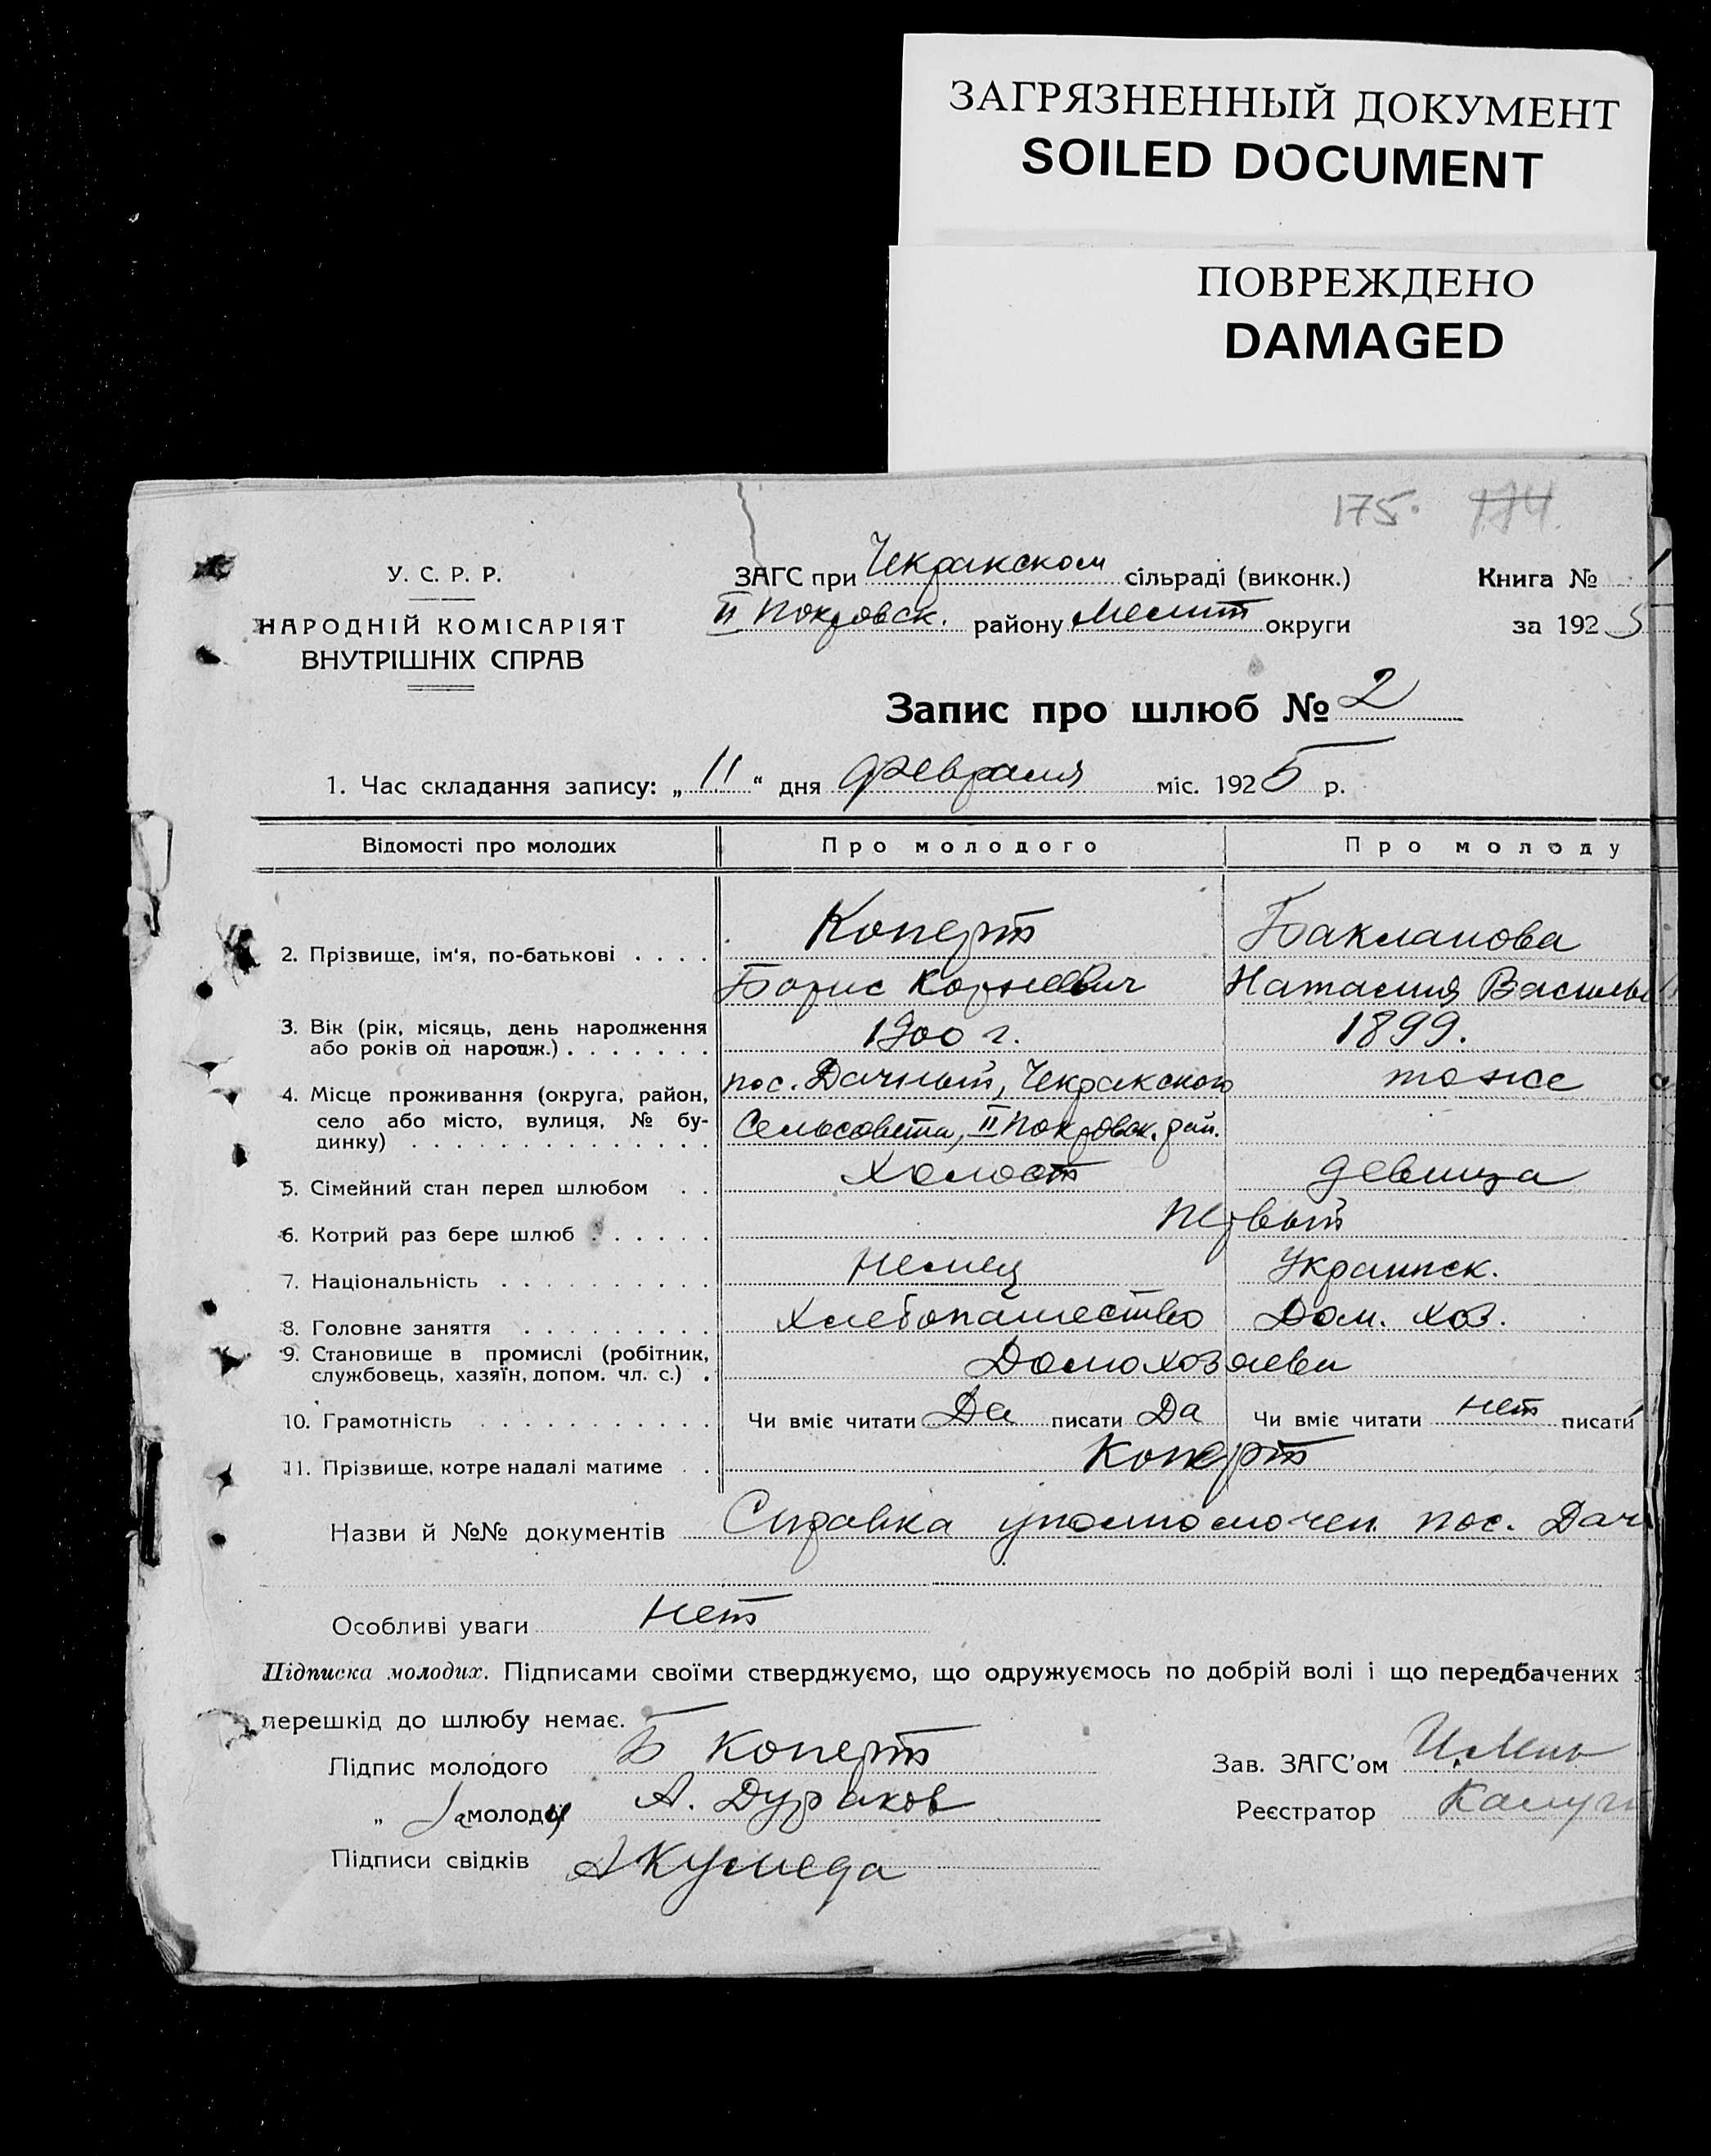 ЗАГРЯЗНЕННЫЙ ДОКУМЕНТ
SOILED DOCUMENT
ПОВРЕЖДЕНО
DAMAGED
175. 174.
У. С. Р. Р.
НАРОДНІЙ КОМІСАРІЯТ
ВНУТРІШНІХ СПРАВ
ЗАГС при Чекракском сільраді (виконк.)
II Покровск. району Мелит округи
Книга № 1
за 1925
Запис про шлюб № 2
1. Час складання запису: „11“ дня февраля міс. 1925 р.
Відомості про молодих Про молодого Про молоду
Коперт Бакланова
2. Прізвище, ім'я, по-батькові . . . .
Борис Корнеевич Наталия Василье
3. Вік (рік, місяць, день народження 1900 г. 1899.
або років од народж.) . . . . . . .
4. Місце проживання (округа, район, пос. Дачный, Чекракского тоже
село або місто, вулиця, № бу- Сельсовета, II Покровск. рай.
динку) . . . . . . . . . . . . . .
5. Сімейний стан перед шлюбом . . Холост девица
6. Котрий раз бере шлюб . . . . . . Первый
7. Національність . . . . . . . . . . немец Украинск.
8. Головне заняття . . . . . . . . . Хлебопашество Дом. хоз.
9. Становище в промислі (робітник, Домохозяева
службовець, хазяїн, допом. чл. с.) .
10. Грамотність . . . . . . . . . . . Чи вміє читати Да писати Да Чи вміє читати нет писати
11. Прізвище, котре надалі матиме . . Коперт
Назви й №№ документів Справка уполномочен. пос. Дач
Особливі уваги нет
Підписка молодих. Підписами своїми стверджуємо, що одружуємось по добрій волі і що передбачених з
перешкід до шлюбу немає.
Підпис молодого Б Коперт Зав. ЗАГС'ом
„ За молоду А. Дураков Реєстратор
Підписи свідків